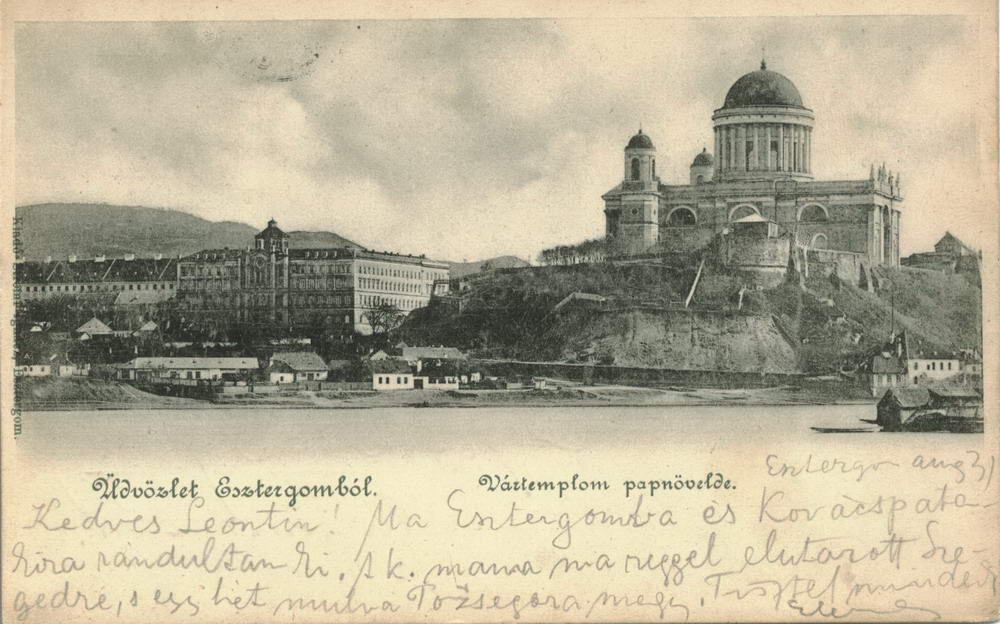 Üdvözlet Esztergomból.
Vártemplom papnövelde.
Esztergom aug 31
Kedves Leontin! Ma Esztergomba és Kovácspata-
kira rándultam ki. A k. mama ma reggel elutazott Sze-
gedre, s egy hét mulva megy. Tisztel mindenkit
Esztergom.